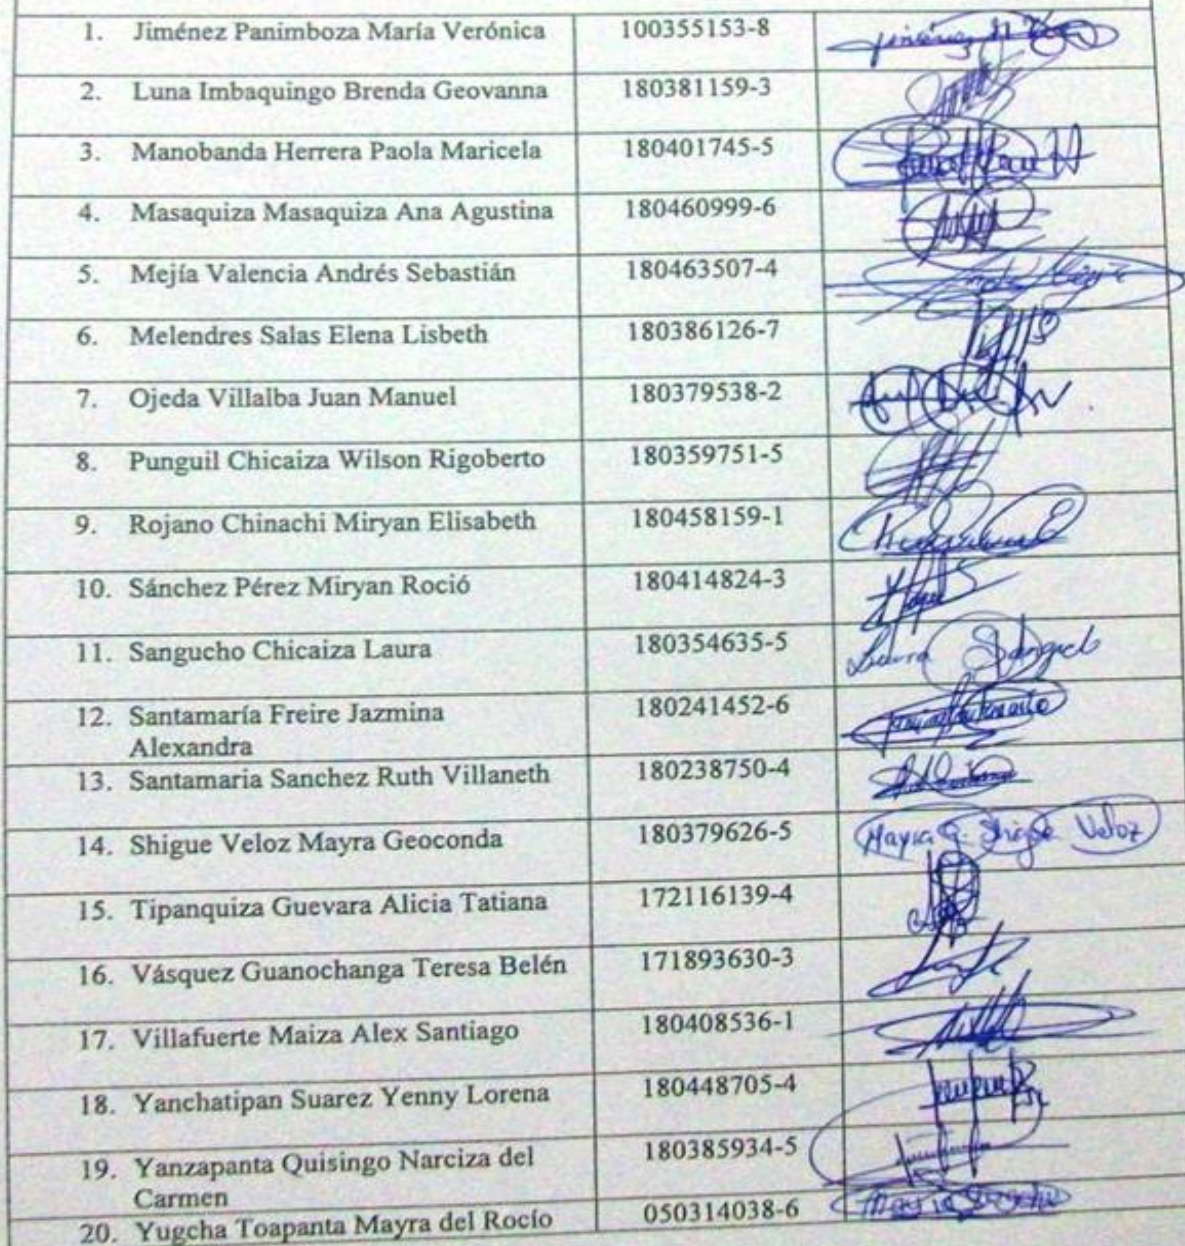 1. Jiménez Panimboza María Verónica 100355153-8
2. Luna Imbaquingo Brenda Geovanna 180381159-3
3. Manobanda Herrera Paola Maricela 180401745-5
4. Masaquiza Masaquiza Ana Agustina 180460999-6
5. Mejía Valencia Andrés Sebastián 180463507-4
6. Melendres Salas Elena Lisbeth 180386126-7
7. Ojeda Villalba Juan Manuel 180379538-2
8. Punguil Chicaiza Wilson Rigoberto 180359751-5
9. Rojano Chinachi Miryan Elisabeth 180458159-1
10. Sánchez Pérez Miryan Roció 180414824-3
11. Sangucho Chicaiza Laura 180354635-5 Laura
12. Santamaría Freire Jazmina 180241452-6
Alexandra
13. Santamaria Sanchez Ruth Villaneth 180238750-4
14. Shigue Veloz Mayra Geoconda 180379626-5 Mayra G. Shigue Veloz
15. Tipanquiza Guevara Alicia Tatiana 172116139-4
16. Vásquez Guanochanga Teresa Belén 171893630-3
17. Villafuerte Maiza Alex Santiago 180408536-1
18. Yanchatipan Suarez Yenny Lorena 180448705-4
19. Yanzapanta Quisingo Narciza del 180385934-5
Carmen
20. Yugcha Toapanta Mayra del Rocío 050314038-6